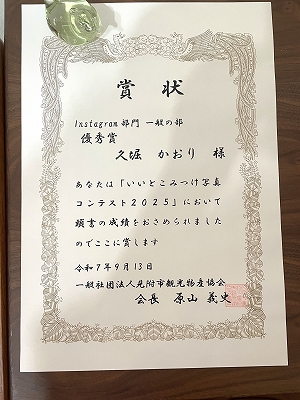 賞状
Instagram部門 一般の部
優秀賞
久堀 かおり 様
あなたは「いいとこみつけ写真
コンテスト2025」において
頭書の成績をおさめられました
のでここに賞します
令和7年9月13日
一般社団法人見附市観光物産協会
会長 原山 義史